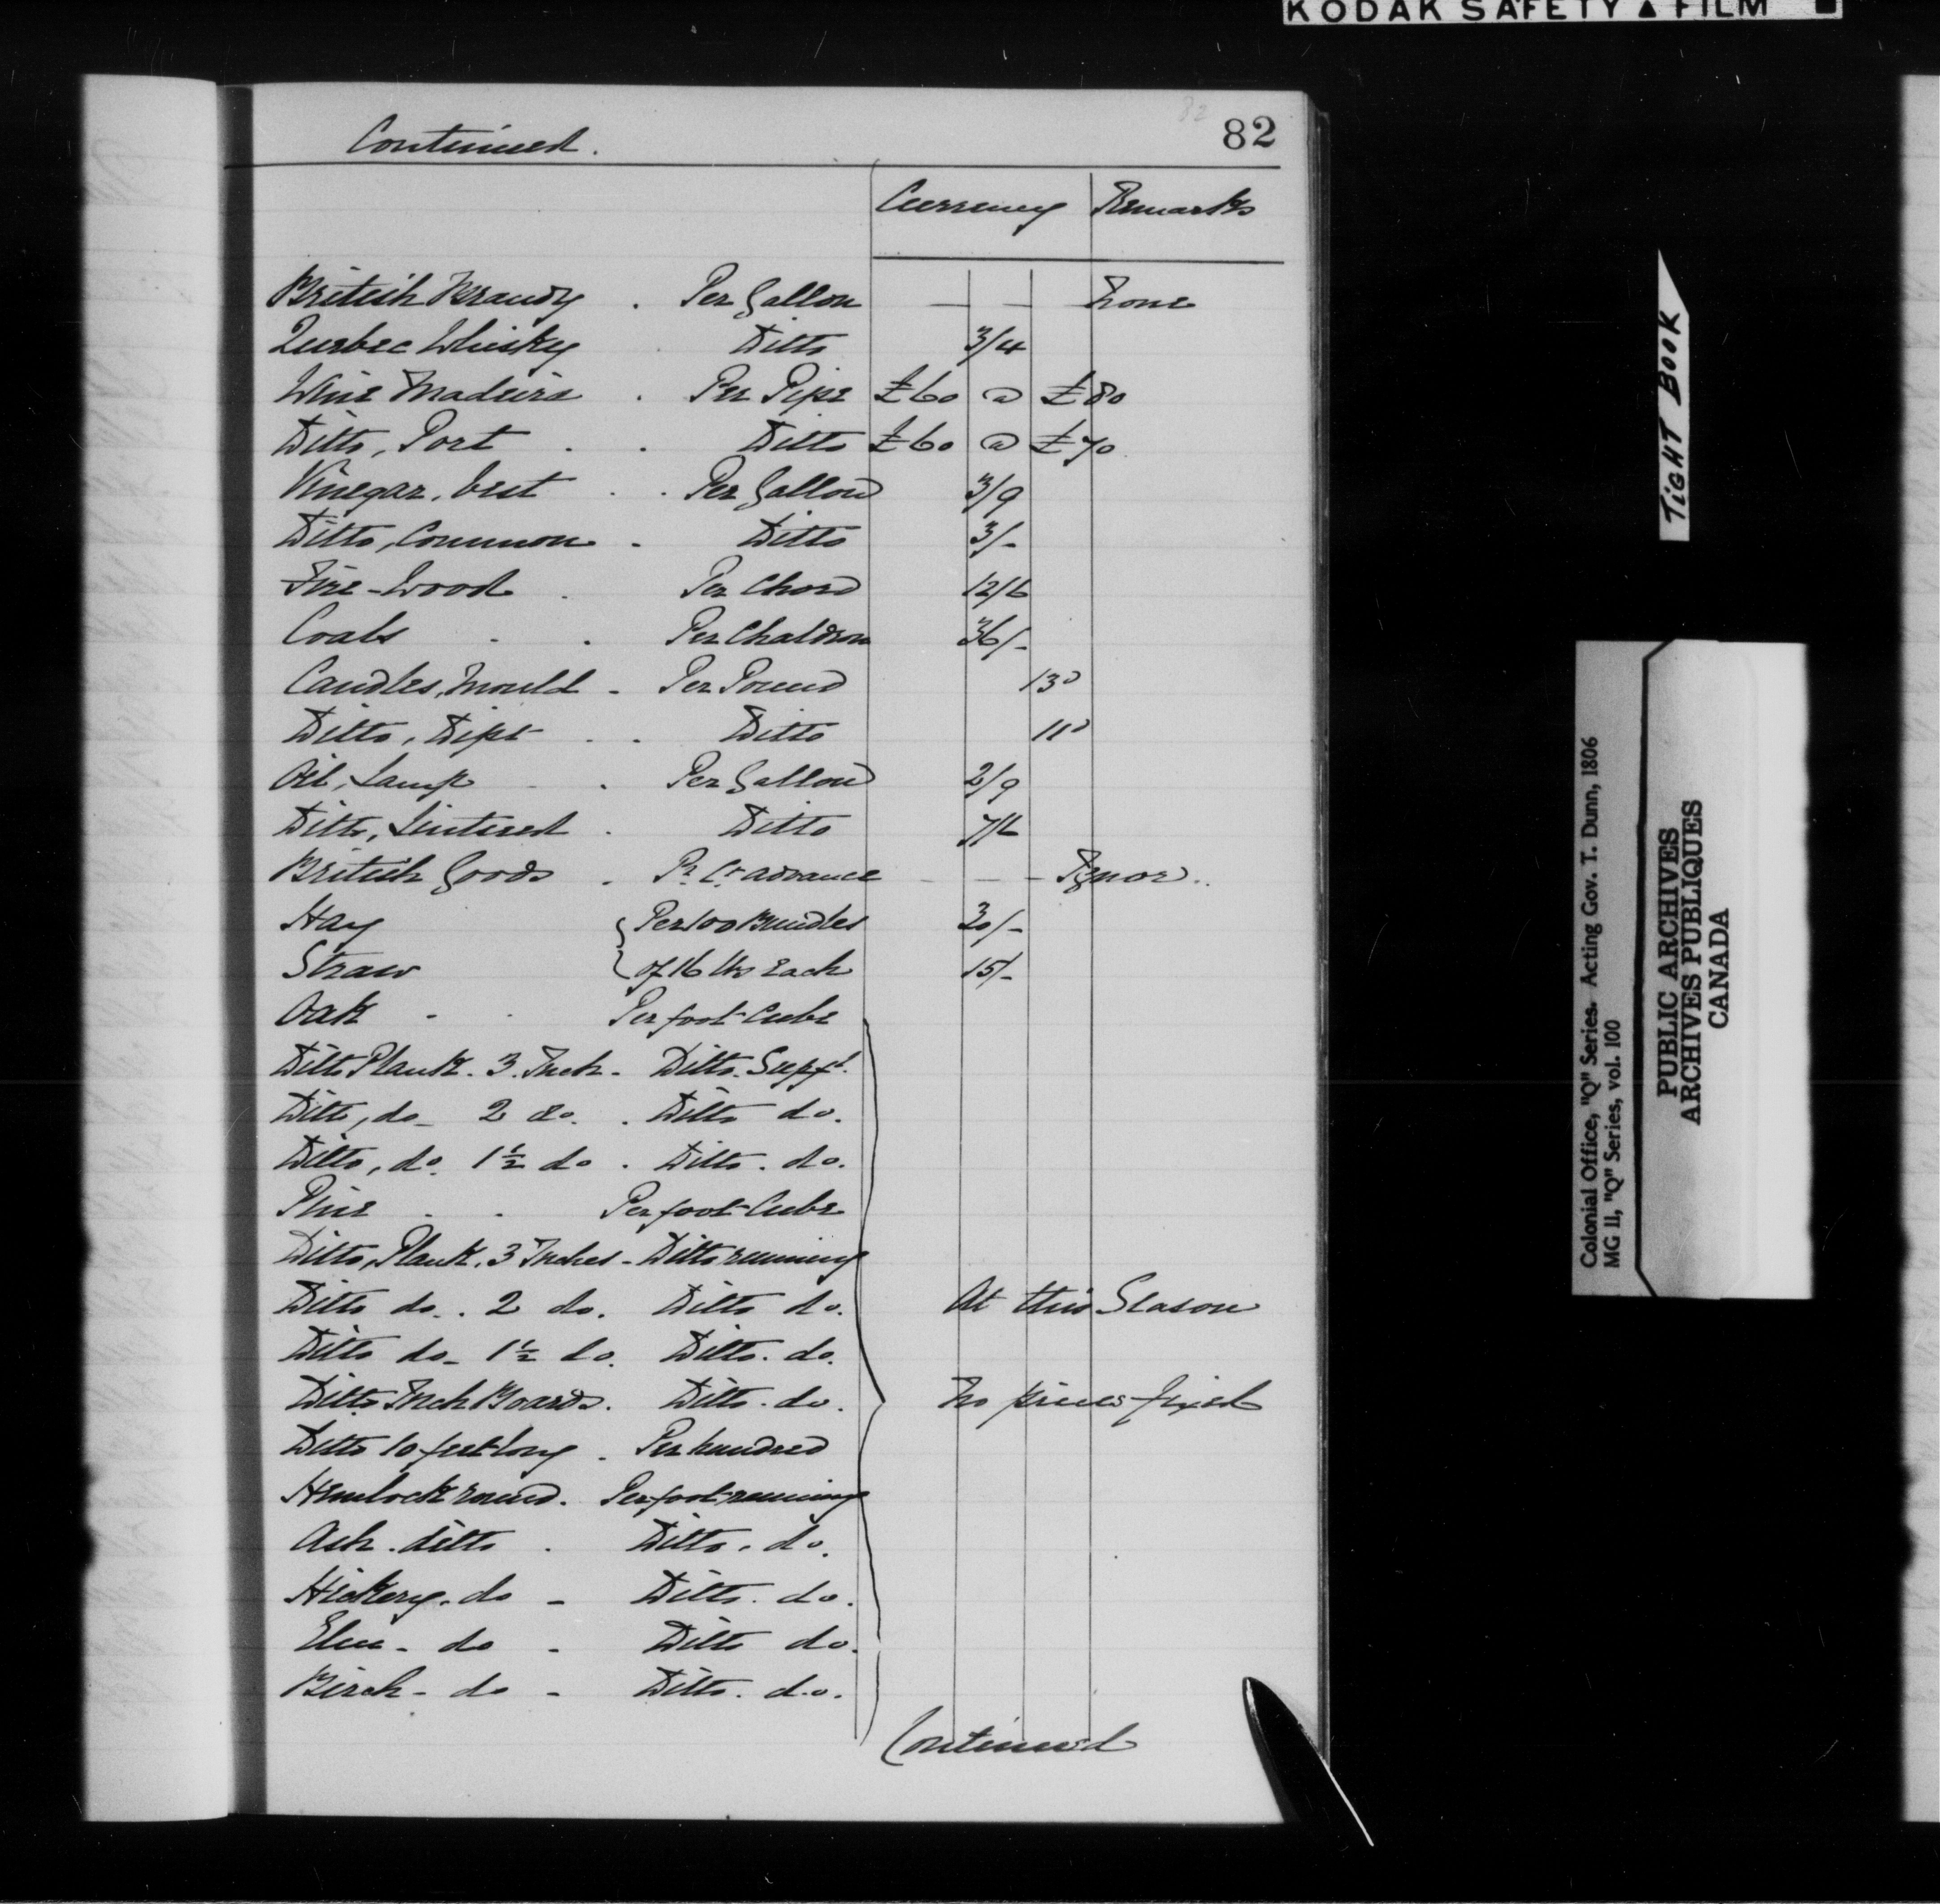 KODAK SAFETY ▲ FILM
82
82
Continued.
Currency Remarks
British Brandy . Per Gallon — — None
Quebec Whisky . Ditto 3/4
Wine Madeira . Per Pipe £60 @ £80
Ditto, Port . . Ditto £60 @ £70
Vinegar, best . . Per Gallon 3/9
Ditto, Common . Ditto 3/-
Fire-Wood . Per Chord 12/6
Coals . . Per Chaldron 36/-
Candles, Mould - Per Pound 13d
Ditto, Dipt . . Ditto 11d
Oil, Lamp . Per Gallon 2/9
Ditto, Lintseed . Ditto 7/6
British Goods . Pr. Ct. advance - — -
Hay { Per 100 Bundles 30/-
Straw { of 16 lbs each 15/-
Oak - . Per foot Cube
Ditto Plank. 3. Inch - Ditto. Supfl.
Ditto, do - 2 do. . Ditto do.
Ditto, do. 1½ do . Ditto. do.
Pine . . Per foot Cube
Ditto, Plank. 3 Inches - Ditto running
Ditto do. . 2 do. Ditto do. At this Season
Ditto do - 1½ do. Ditto. do.
Ditto Inch Boards. Ditto. do. No prices fixed
Ditto 10 feet long . Per hundred
Hemlock round. Per foot running
Ash. ditto . Ditto. do.
Hickery. do - Ditto. do.
Elm - do - Ditto do.
Birch - do - Ditto. do.
Continued
TIGHT BOOK
Colonial Office, "Q" Series. Acting Gov. T. Dunn, 1806
MG 11, "Q" Series, vol. 100
PUBLIC ARCHIVES
ARCHIVES PUBLIQUES
CANADA